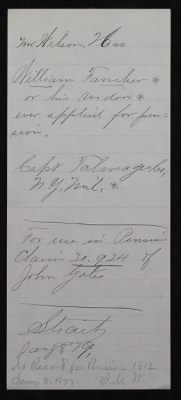 Mr Wilson, Has
William Fancher *
or his widow *
ever applied for pen-
sion,
Capt Talmage Co,
N.Y. Mil, *
For use in Pension
Claim 30.934 of
John Gates
Strait
Jany 8 79,
No Record for Pension - 1812
Jany 8. 1879.